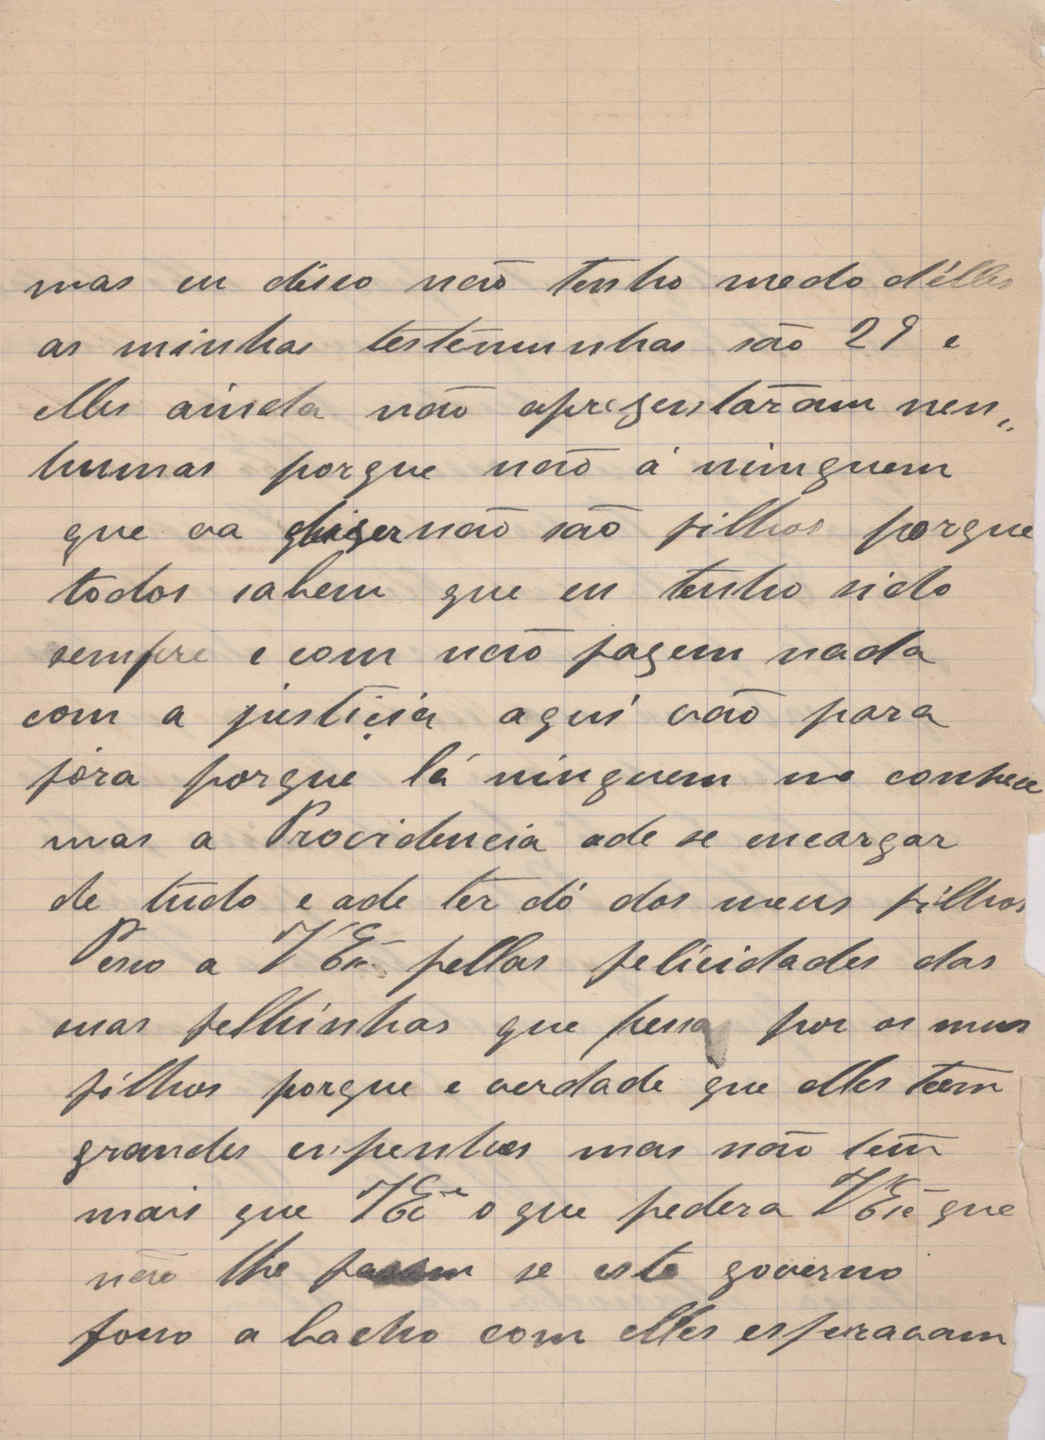 mas eu disco não tenho medo d'élles
as minhas testemunhas são 29 e
elles ainda não aprezentáram nen„
humas porque não á ninguem
que va diser não são filhos porque
todos sabem que eu tenho sido
sempre e com não fazem nada
com a justicia aqui vão para
fóra porque lá ninguem me conhece
mas a Providencia ade se encargar
de tudo e ade ter dó dos meus filhos
Peso a V Ecª pellas felicidades das
suas felhinhas que pessa por os meus
filhos porque e verdade que elles tem
grandes enpenhos mas não tem
mais que V Ecª o que pedera V Ecª que
não lhe fassem se este governo
foso a bacho com elles esperavam